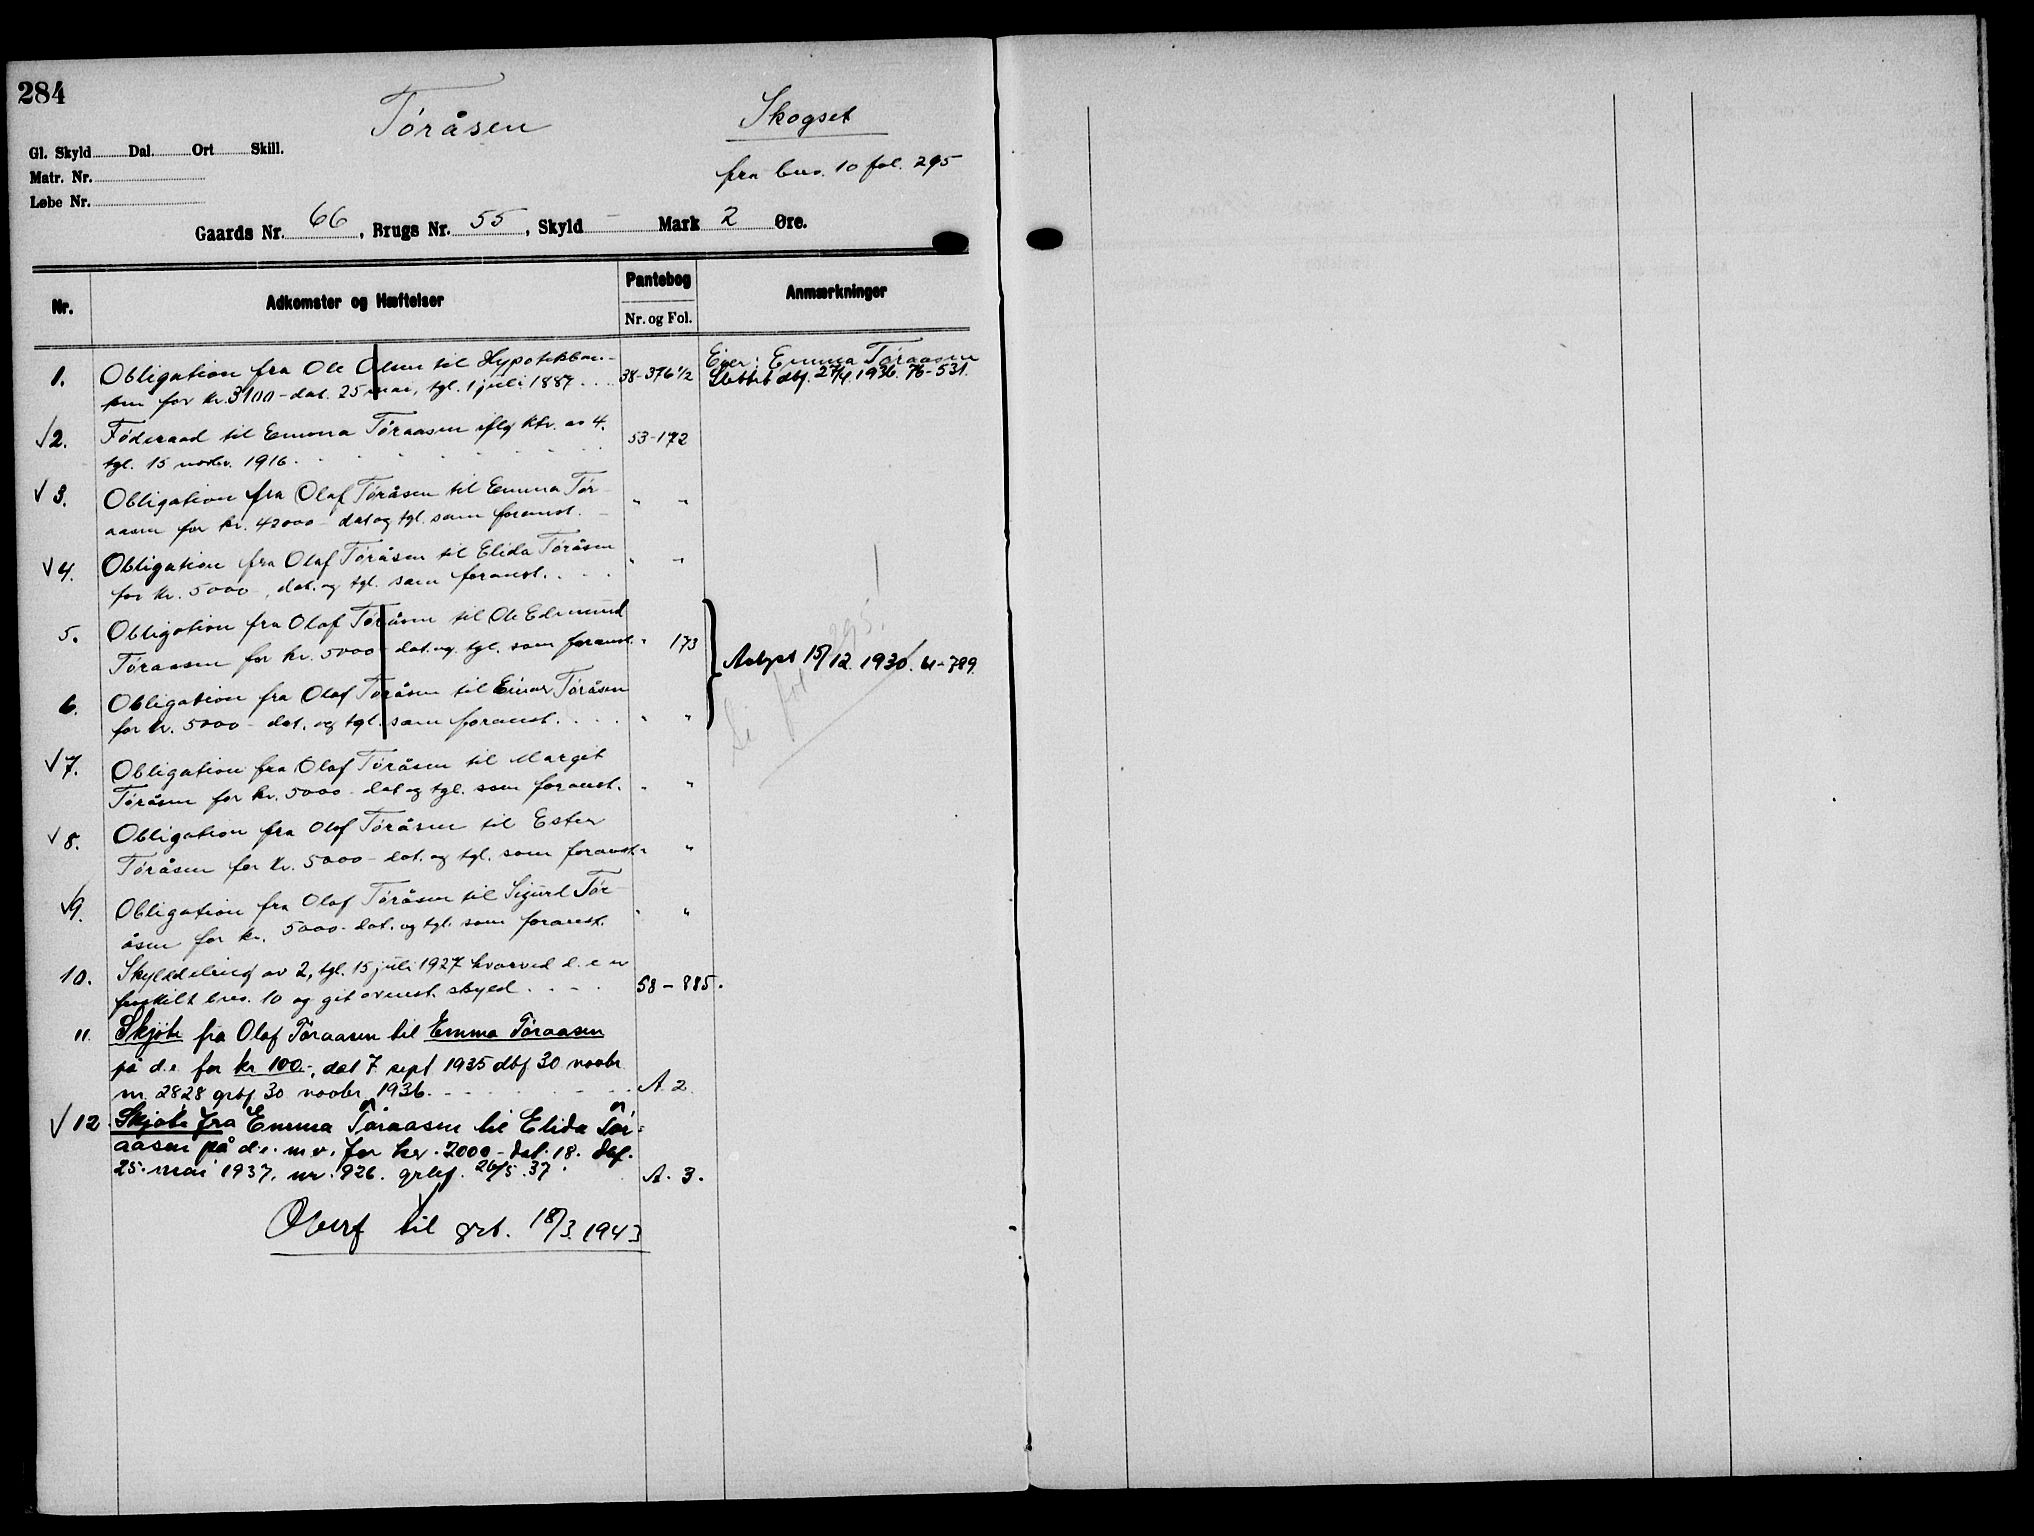 284
Tøråsen
Skogset
Gl. Skyld Dal. Ort Skill.
fra brs. 10 fol. 295
Matr. Nr.
Løbe Nr.
Gaards Nr. 66, Brugs Nr. 55, Skyld - Mark 2 Øre.
Nr. Adkomster og Hæftelser Pantebog Nr. og Fol. Anmærkninger
1. Obligation fra Ole Olsen til Hypotekban- 38-376 1/2 Eier: Emma Tøraasen
ken for kr. 3100- dat. 25 mai, tgl. 1 juli 1887. Slettet dbf. 27/4 1936. 76-531.
√2. Føderaad til Emma Tøraasen iflg ktr. av 4. 53-172
tgl. 15 novbr. 1916.
√3. Obligation fra Olaf Tøråsen til Emma Tør- " "
aasen for kr. 42000- dat og tgl. som foranst.
√4. Obligation fra Olaf Tøråsen til Elida Tøråsen " "
for kr. 5000-, dat. og tgl. som foranst.
5. Obligation fra Olaf Tøråsen til Ole Edmund
Tøraasen for kr. 5000- dat. og tgl. som foranst. " 173
Avlyst 15/12. 1930. 61-789.
6. Obligation fra Olaf Tøråsen til Einar Tøråsen
for kr. 5000- dat. og tgl. som foranst. " "
Se fol 295!
√7. Obligation fra Olaf Tøråsen til Margit
Tøråsen for kr. 5000- dat og tgl. som foranst. " "
√8. Obligation fra Olaf Tøråsen til Ester
Tøråsen for kr. 5000- dat. og tgl. som foranst. " "
√9. Obligation fra Olaf Tøråsen til Sigurd Tør-
åsen for kr. 5000- dat. og tgl. som foranst. " "
10. Skylddeling av 2, tgl. 15 juli 1927 hvorved d. e er
fraskilt brs. 10 og git ovenst. skyld. 58-885.
11. Skjøte fra Olaf Tøraasen til Emma Tøraasen
på d.e for kr 100.-, dat 7. sept 1935 dbf 30 novbr
nr. 2828 grbf 30 novbr. 1936. A. 2
√12 Skjøte fra Emma Tøraasen til Elida Tør=
aasen på d.e. m.v. for kr. 2000- dat. 18. dbf.
25. mai 1937. nr. 926. grbf. 26/5. 37. A. 3.
Overf til grb. 18/3. 1943